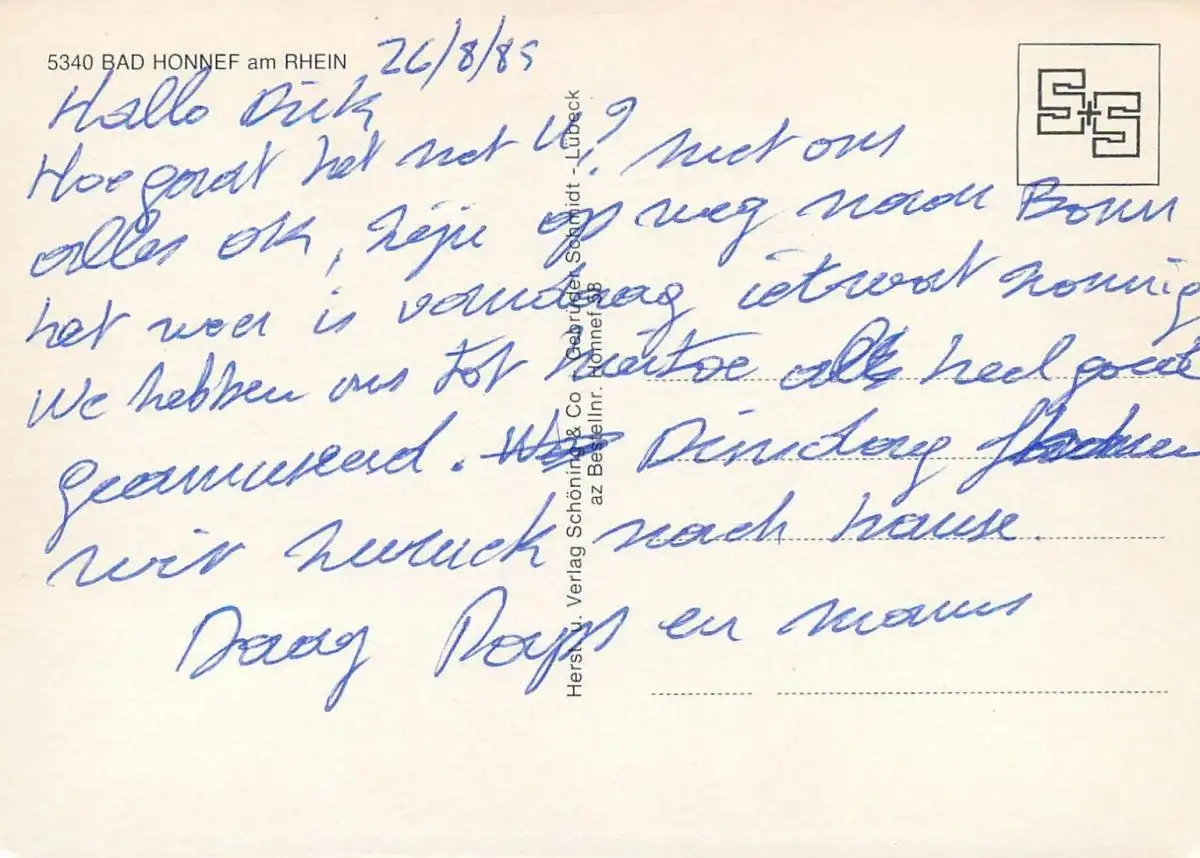 5340 BAD HONNEF am RHEIN
26/8/85
Hallo Dick
Hoe gaat het met U? met ons
alles ok, zijn op weg naar Bonn
het weer is vandaag ietwat zonnig
We hebben ons tot hiertoe heel goed
geamuseerd. Dinsdag
wir zuruck nach hause.
Daag Paps en mams
S+S
Herst. u. Verlag Schöning & Co · Gebrüder Schmidt - Lübeck
az Bestellnr. Honnef 58